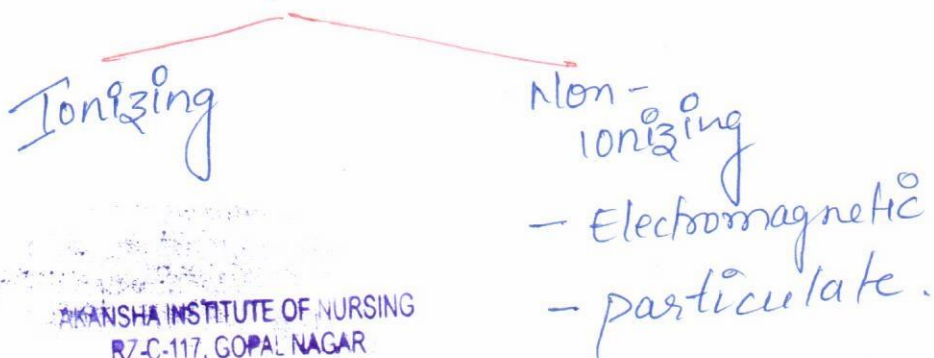 Ionizing
Non-
ionizing
- Electromagnetic
- particulate.
AKANSHA INSTITUTE OF NURSING
RZ-C-117, GOPAL NAGAR